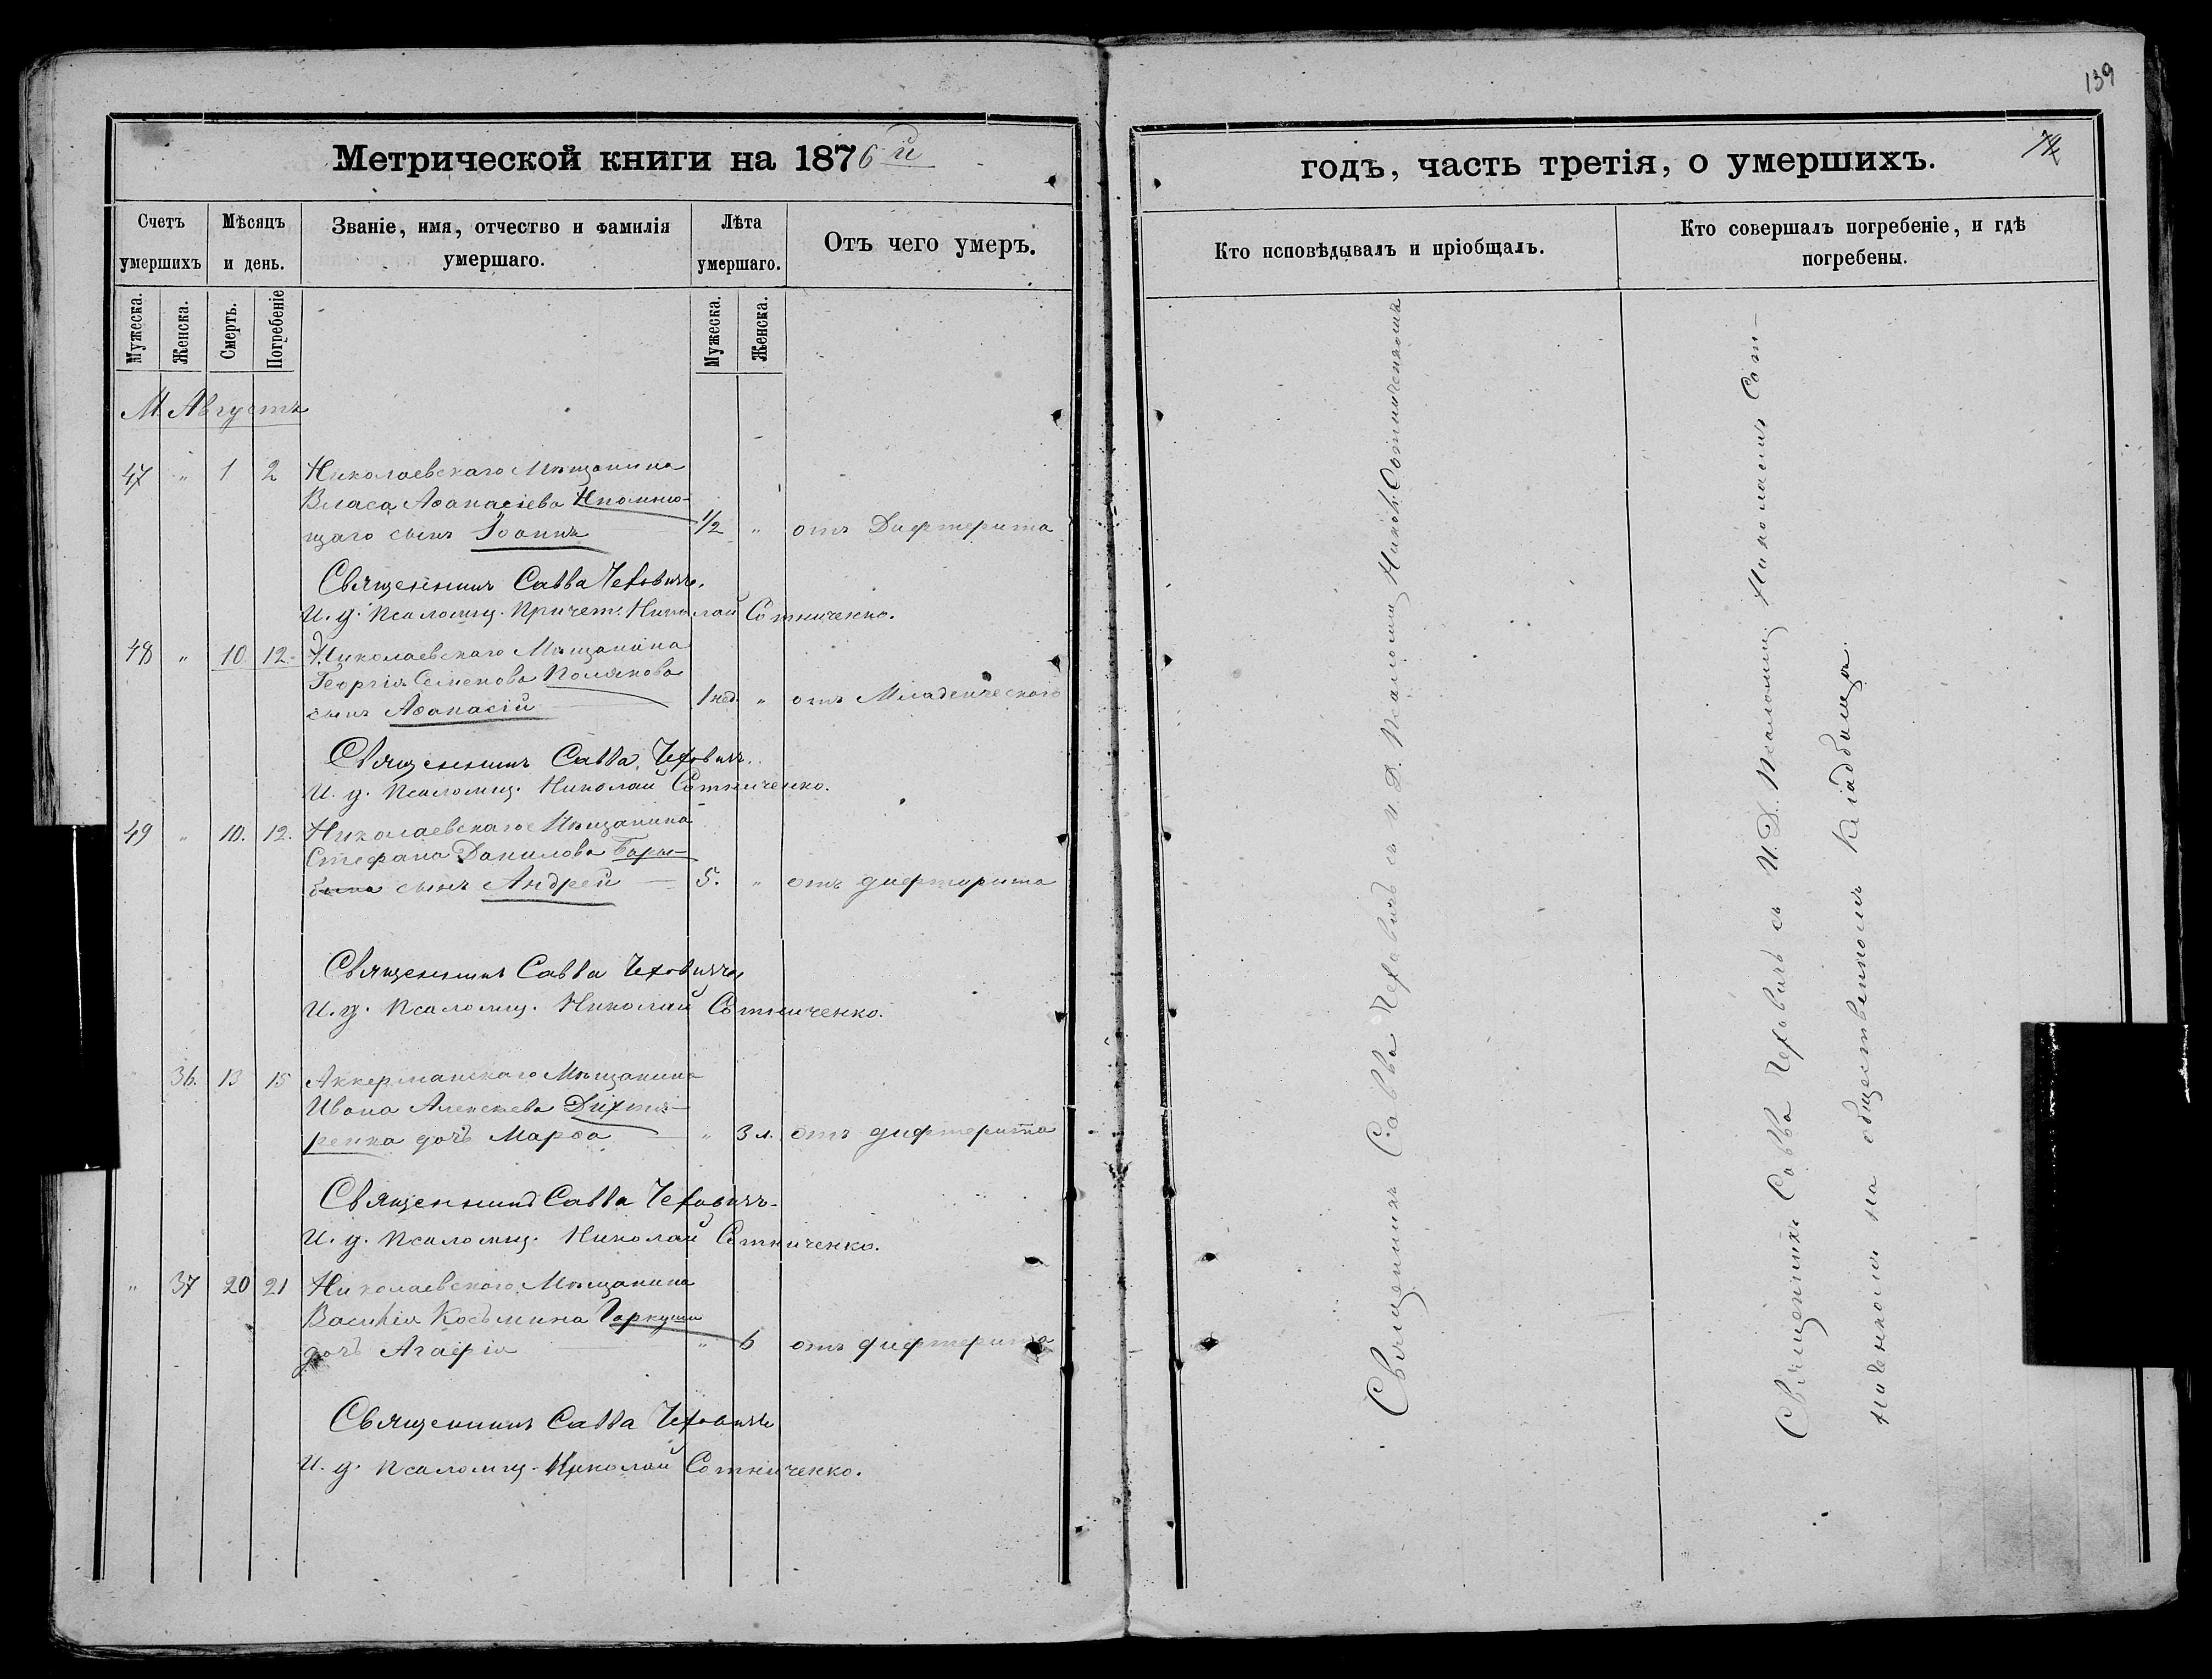 139
Метрической книги на 1876 й
годъ, часть третія, о умершихъ.
Счетъ умершихъ
Мѣсяцъ и день.
Званіе, имя, отчество и фамилія умершаго.
Лѣта умершаго.
Отъ чего умеръ.
Кто исповѣдывалъ и пріобщалъ.
Кто совершалъ погребеніе, и гдѣ погребены.
Мужеска. Женска. Смерть. Погребеніе Мужеска. Женска.
М. Августъ
47 " 1 2 Николаевскаго Мѣщанина
Власа Аѳанасіева Непомню-
щаго сынъ Іоаннъ 1/2 " отъ Дифтерита
Священникъ Савва Чеховичъ.
И. д. Псаломщ. Причет. Николай Сотниченко.
48 " 10 12. Николаевскаго Мѣщанина
Георгія Семенова Полякова
сынъ Аѳанасій 1 нед. " отъ Младенческаго
Священникъ Савва Чеховичъ.
И. д. Псаломщ. Николай Сотниченко.
49 " 10. 12. Николаевскаго Мѣщанина
Стефана Данилова
сынъ Андрей 5. " отъ дифтерита
Священникъ Савва Чеховичъ
И. д. Псаломщ. Николай Сотниченко.
36. 13 15 Аккерманскаго Мѣщанина
Ивана Алексѣева Дихтя-
ренка дочь Марѳа " 3 л. отъ дифтерита
Священникъ Савва Чеховичъ
И. д. Псаломщ. Николай Сотниченко.
" 37 20 21 Николаевскаго Мѣщанина
Василія Косьмина Гаркуши
дочь Агафія " 6 отъ дифтерита
Священникъ Савва Чеховичъ
И. д. Псаломщ. Николай Сотниченко.
Священникъ Савва Чеховичъ съ И. Д. Псаломщ. Никол. Сотниченкомъ
Священникъ Савва Чеховичъ съ И. Д. Псаломщ. Николаемъ Сот-
ниченкомъ на общественномъ кладбищѣ.